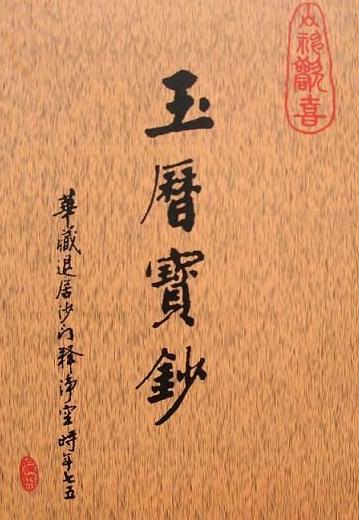 神歡喜
玉曆寶鈔
華藏退居沙门釋淨空時年七五